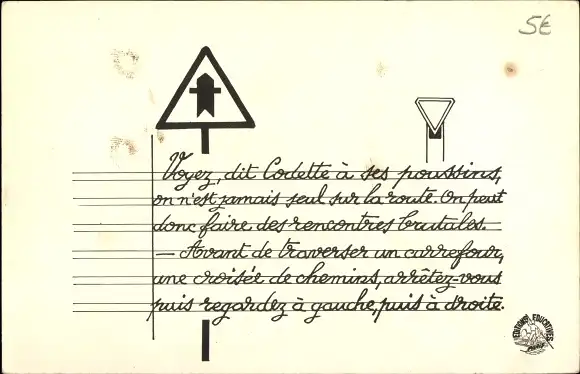 5€
Voyez, dit Codette à ses poussins,
on n'est jamais seul sur la route. On peut
donc faire des rencontres brutales.
— Avant de traverser un carrefour,
une croisée de chemins, arrêtez-vous
puis regardez à gauche, puis à droite.
EDITIONS EDUCATIVES
PARIS